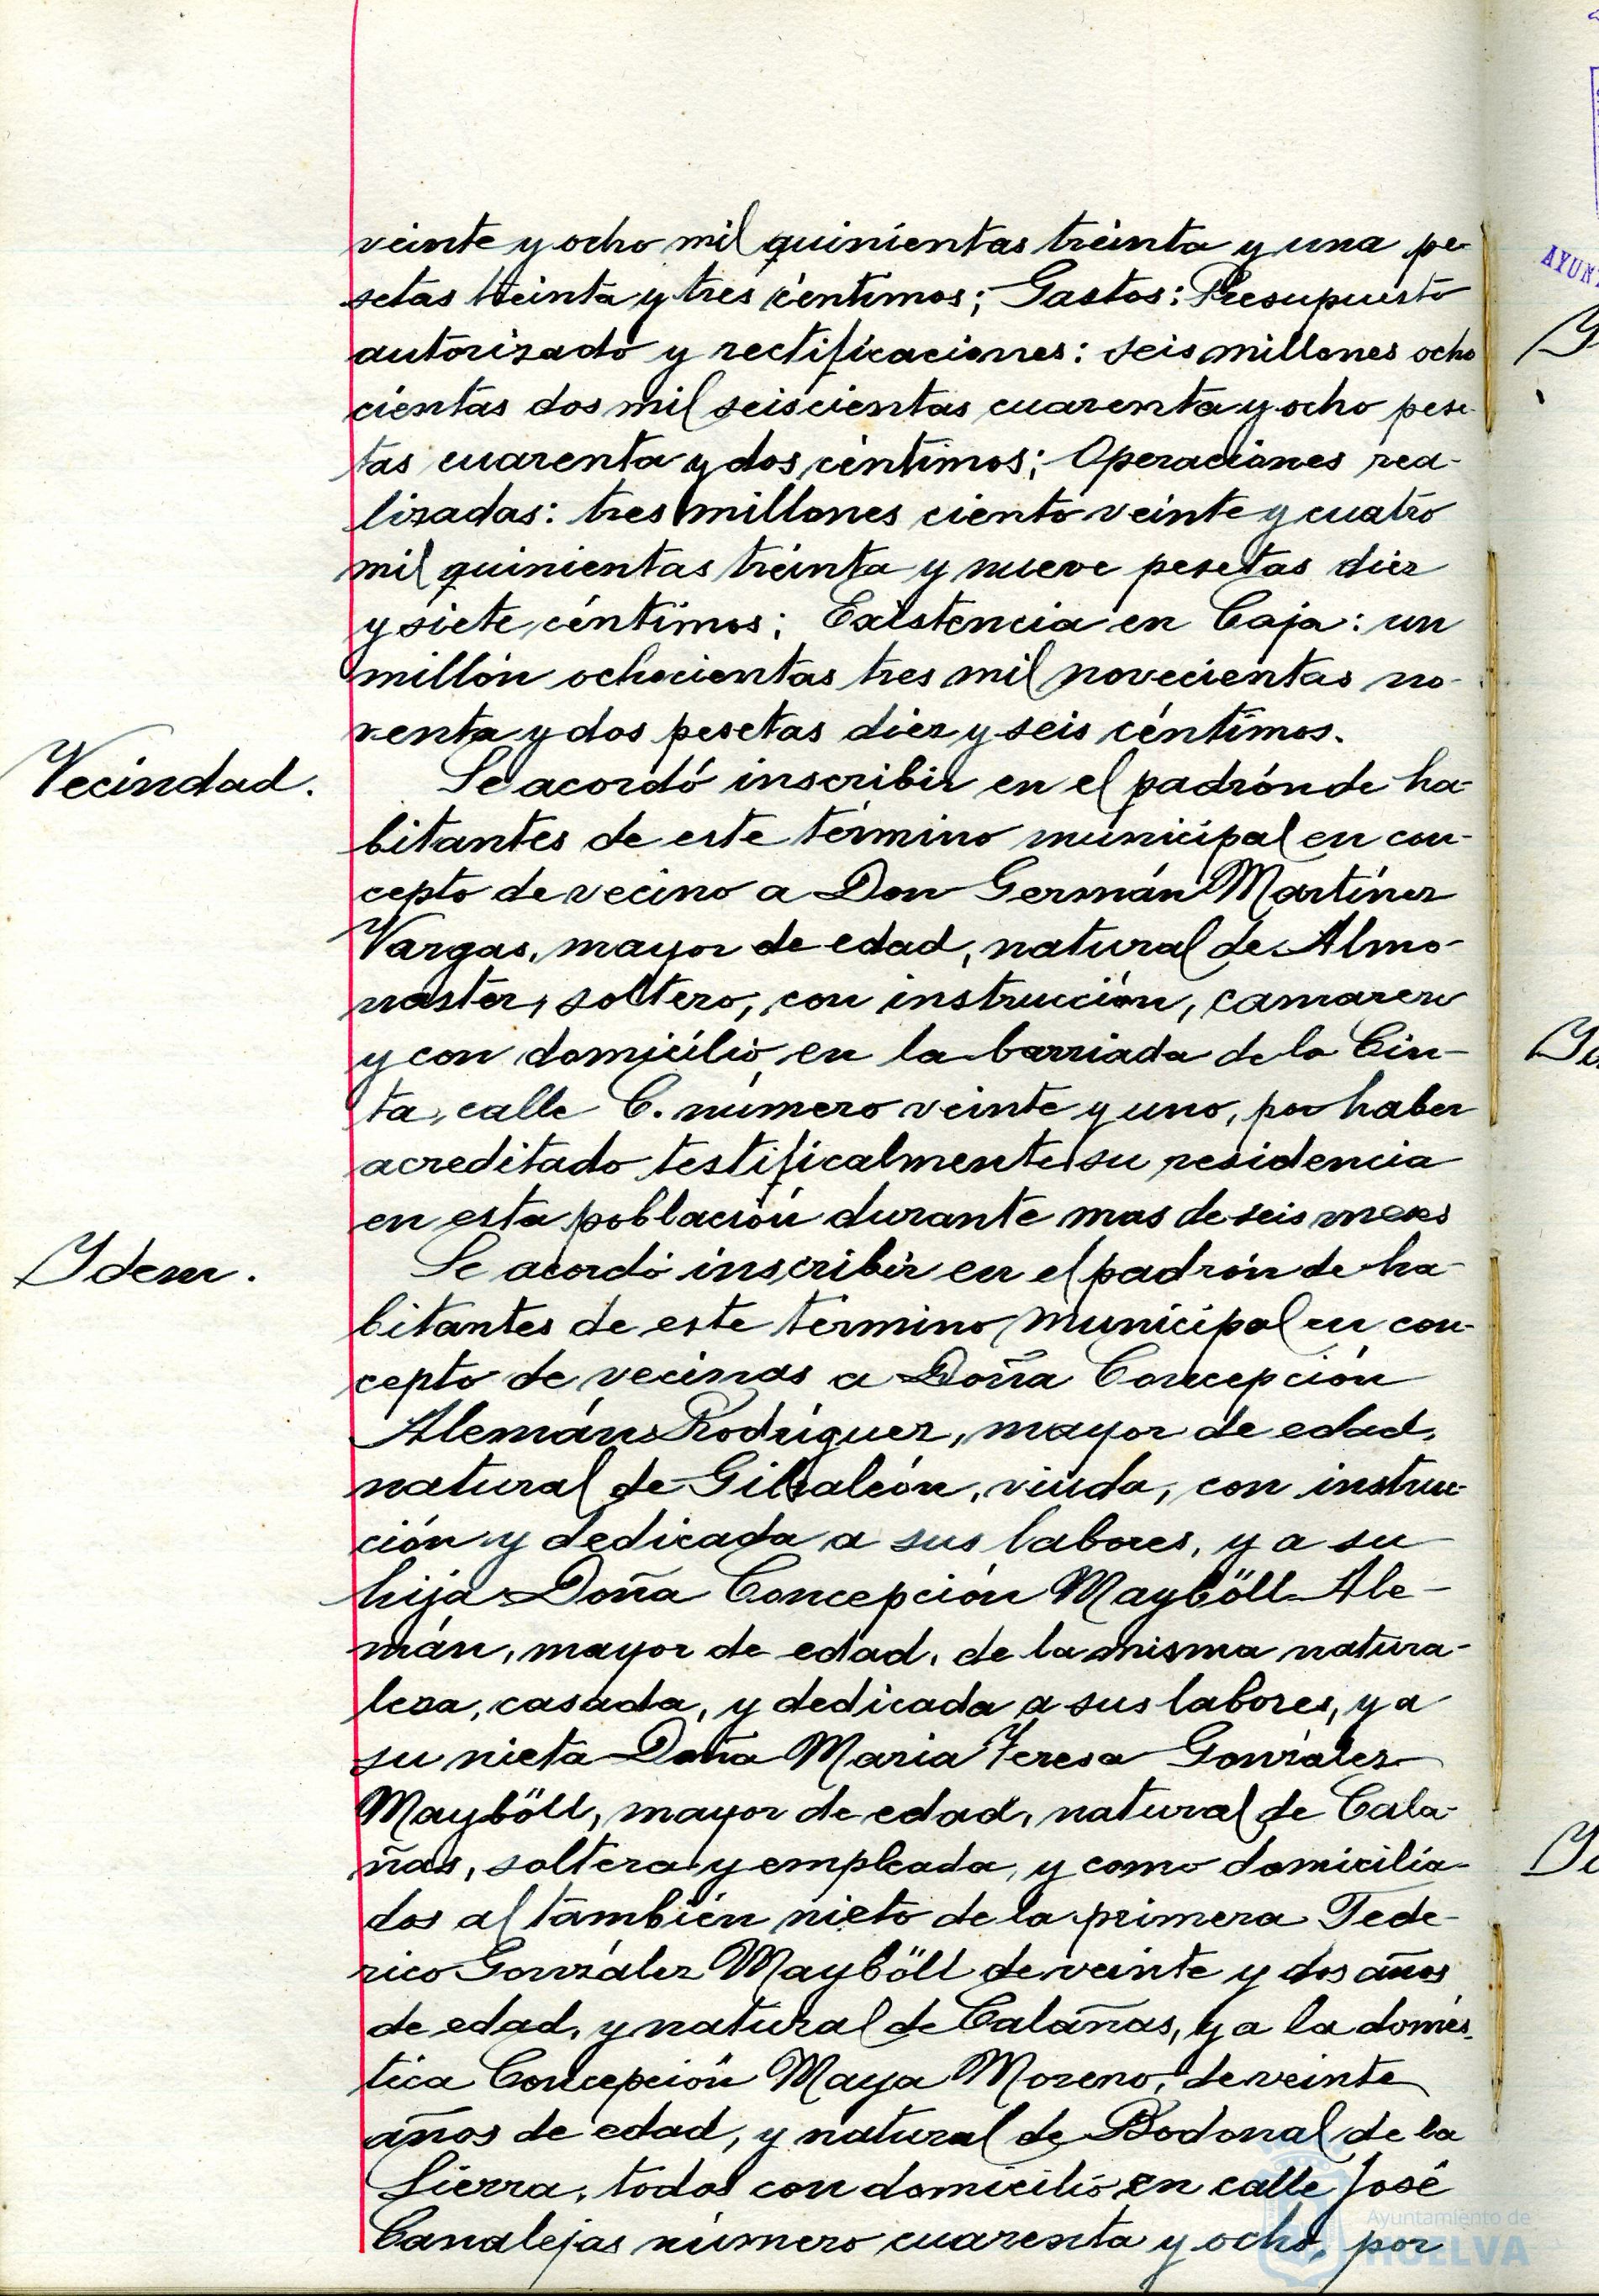 veinte y ocho mil quinientas treinta y una pe-
setas treinta y tres céntimos; Gastos: Presupuesto
autorizado y rectificaciones: seis millones ocho
cientas dos mil seiscientas cuarenta y ocho pese-
tas cuarenta y dos céntimos; Operaciones rea-
lizadas: tres millones ciento veinte y cuatro
mil quinientas treinta y nueve pesetas diez
y siete céntimos; Existencia en Caja: un
millón ochocientas tres mil novecientas no-
venta y dos pesetas diez y seis céntimos.
Vecindad.
Se acordó inscribir en el padrón de ha-
bitantes de este término municipal en con-
cepto de vecino a Don Germán Martínez
Vargas, mayor de edad, natural de Almo-
naster, soltero, con instrucción, camarero
y con domicilio en la barriada de la Cin-
ta, calle C. número veinte y uno, por haber
acreditado testificalmente su residencia
en esta población durante mas de seis meses
Idem.
Se acordó inscribir en el padrón de ha-
bitantes de este término municipal en con-
cepto de vecinas a Doña Concepción
Alemán Rodríguez, mayor de edad,
natural de Gibraleón, viuda, con instruc-
ción y dedicada a sus labores, y a su
hija Doña Concepción Mayböll Ale-
mán, mayor de edad, de la misma natura-
leza, casada, y dedicada a sus labores, y a
su nieta Doña Maria Teresa González
Mayböll, mayor de edad, natural de Cala-
ñas, soltera y empleada, y como domicilia-
dos al también nieto de la primera Fede-
rico González Mayböll de veinte y dos años
de edad, y natural de Calañas, y a la domés-
tica Concepción Maya Moreno, de veinte
años de edad, y natural de Bodonal de la
Sierra, todos con domicilio en calle José
Canalejas número cuarenta y ocho, por
Ayuntamiento de
HUELVA